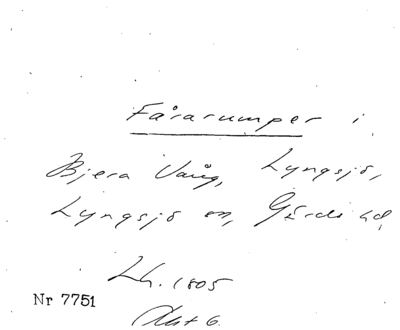 Fårarumper i
Bjera Vång, Lyngsjö,
Lyngsjö sn, Gärds hd,
Lh. 1805
Nr 7751
Akt 6.